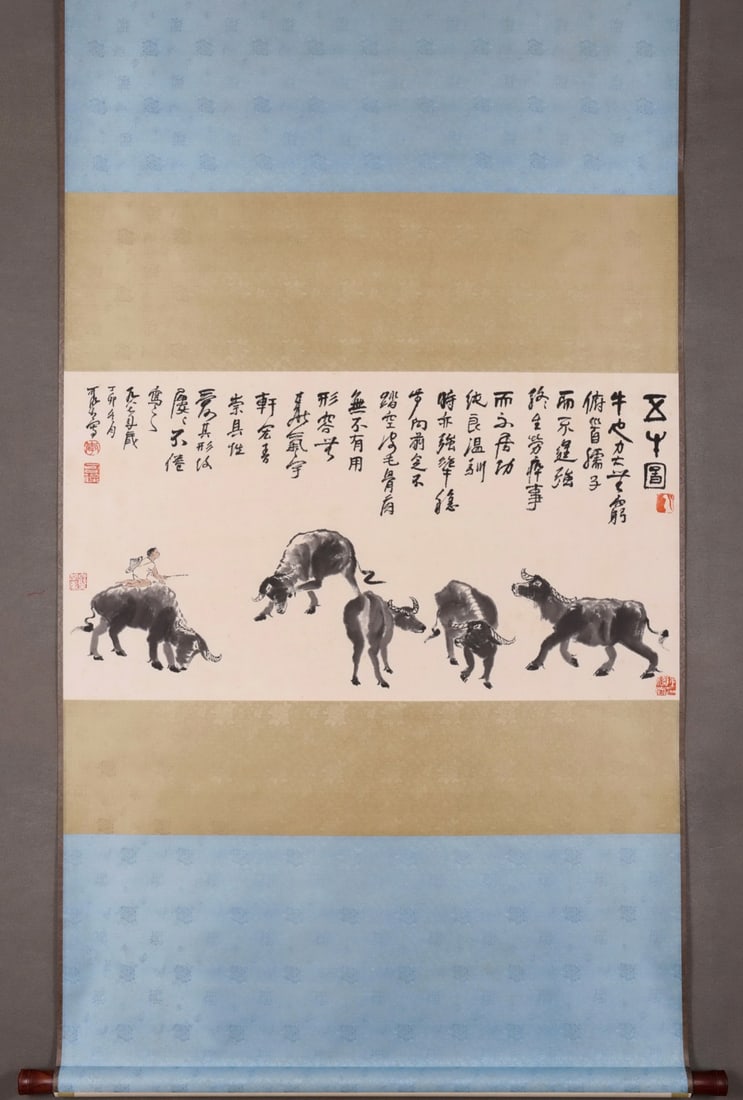 五牛圖
牛也力大无窮
俯首孺子
而不逞強
終生勞瘁事
而不居功
純良溫馴
時亦強犟穩
步向前足不
踏空皮毛骨角
無不有用
形容无
華氣宇
軒宏吾
崇其性
愛其形故
屢々不倦
寫之
一九八七年歲
丁卯
可染寫